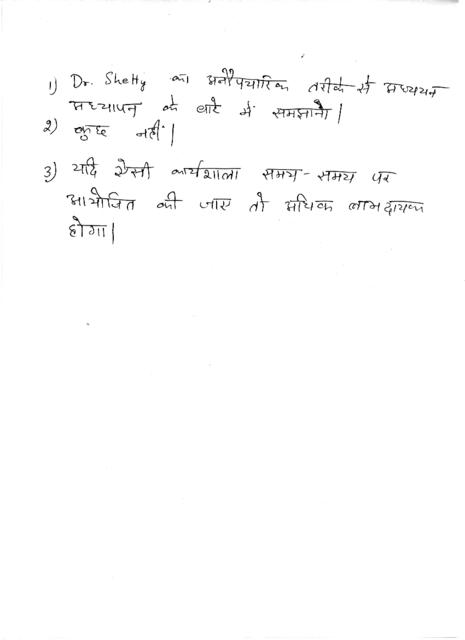 1) Dr. Shetty का अनौपचारिक तरीके से अध्ययन
अध्यापन के बारे में समझाना |
2) कुछ नहीं |
3) यदि ऐसी कार्यशाला समय-समय पर
आयोजित की जाए तो अधिक लाभदायक
होगा |